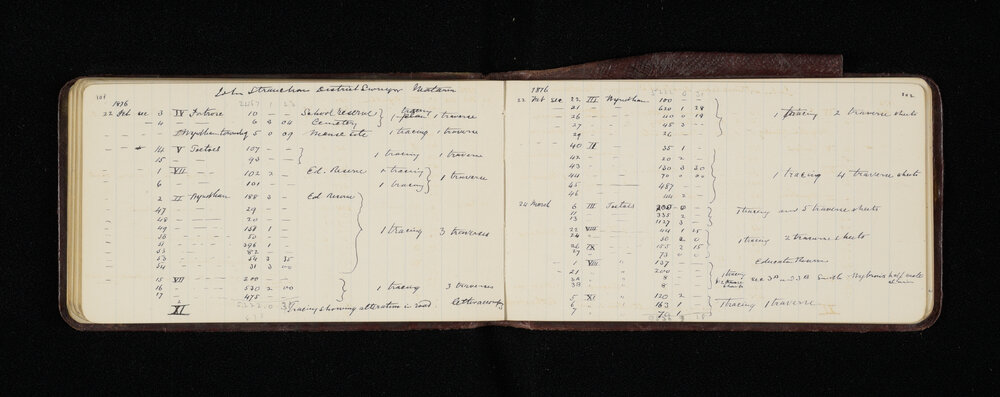 101
John Strauchon District Surveyor Mataura
1876
22 Feb sec 3 IV Fortrose 10 - - School reserve 1 tracing 1 traverse
- 4 - - 6 2 04 Cemetery 1 plan
Wyndham township 5 0 09 Manse site 1 tracing 1 traverse
14 V Toetoes 107 - -
15 - 93 - - 1 tracing 1 traverse
1 VII - 102 2 - Ed. Reserve 1 tracing 1 traverse
6 - 101 1 tracing
2 II Wyndham 188 3 - Ed Reserve
47 - 29 - -
48 - 20 - -
49 - 158 1 -
50 - -
51 396 1 -
53 82
53 54 3 35
54 31 3 00
1 tracing 3 traverses
15 VII - 200 - -
16 - 530 2 00 1 tracing 3 traverses
17 - 475
XI Tracing showing alteration in road
102
1876
22 Feb sec 22 III Wyndham 100 - -
21 - - 620 1 28
26 - - 40 0 19 1 tracing 2 traverse sheets
27 - - 45 3 -
29 - - 26 - -
40 II 35 1 -
42 - - 20 2 -
43 130 3 30
44 70 0 20 1 tracing 4 traverse sheets
45 487 -
46 44 2
24 March 6 III Toetoes 200 0 -
11 335 2 1 tracing and 5 traverse sheets
13 1127 3
22 VIII 44 1 15
24 - 50 2 0 1 tracing 2 traverse sheets
26 IX 155 2 15
27 73 0 0
1 VIII 137 - - Education Reserve
21 200 - -
2A 8 1 tracing
3A 8
5 XI 120 2 -
6 163 1 1 tracing 1 traverse
7 70 1